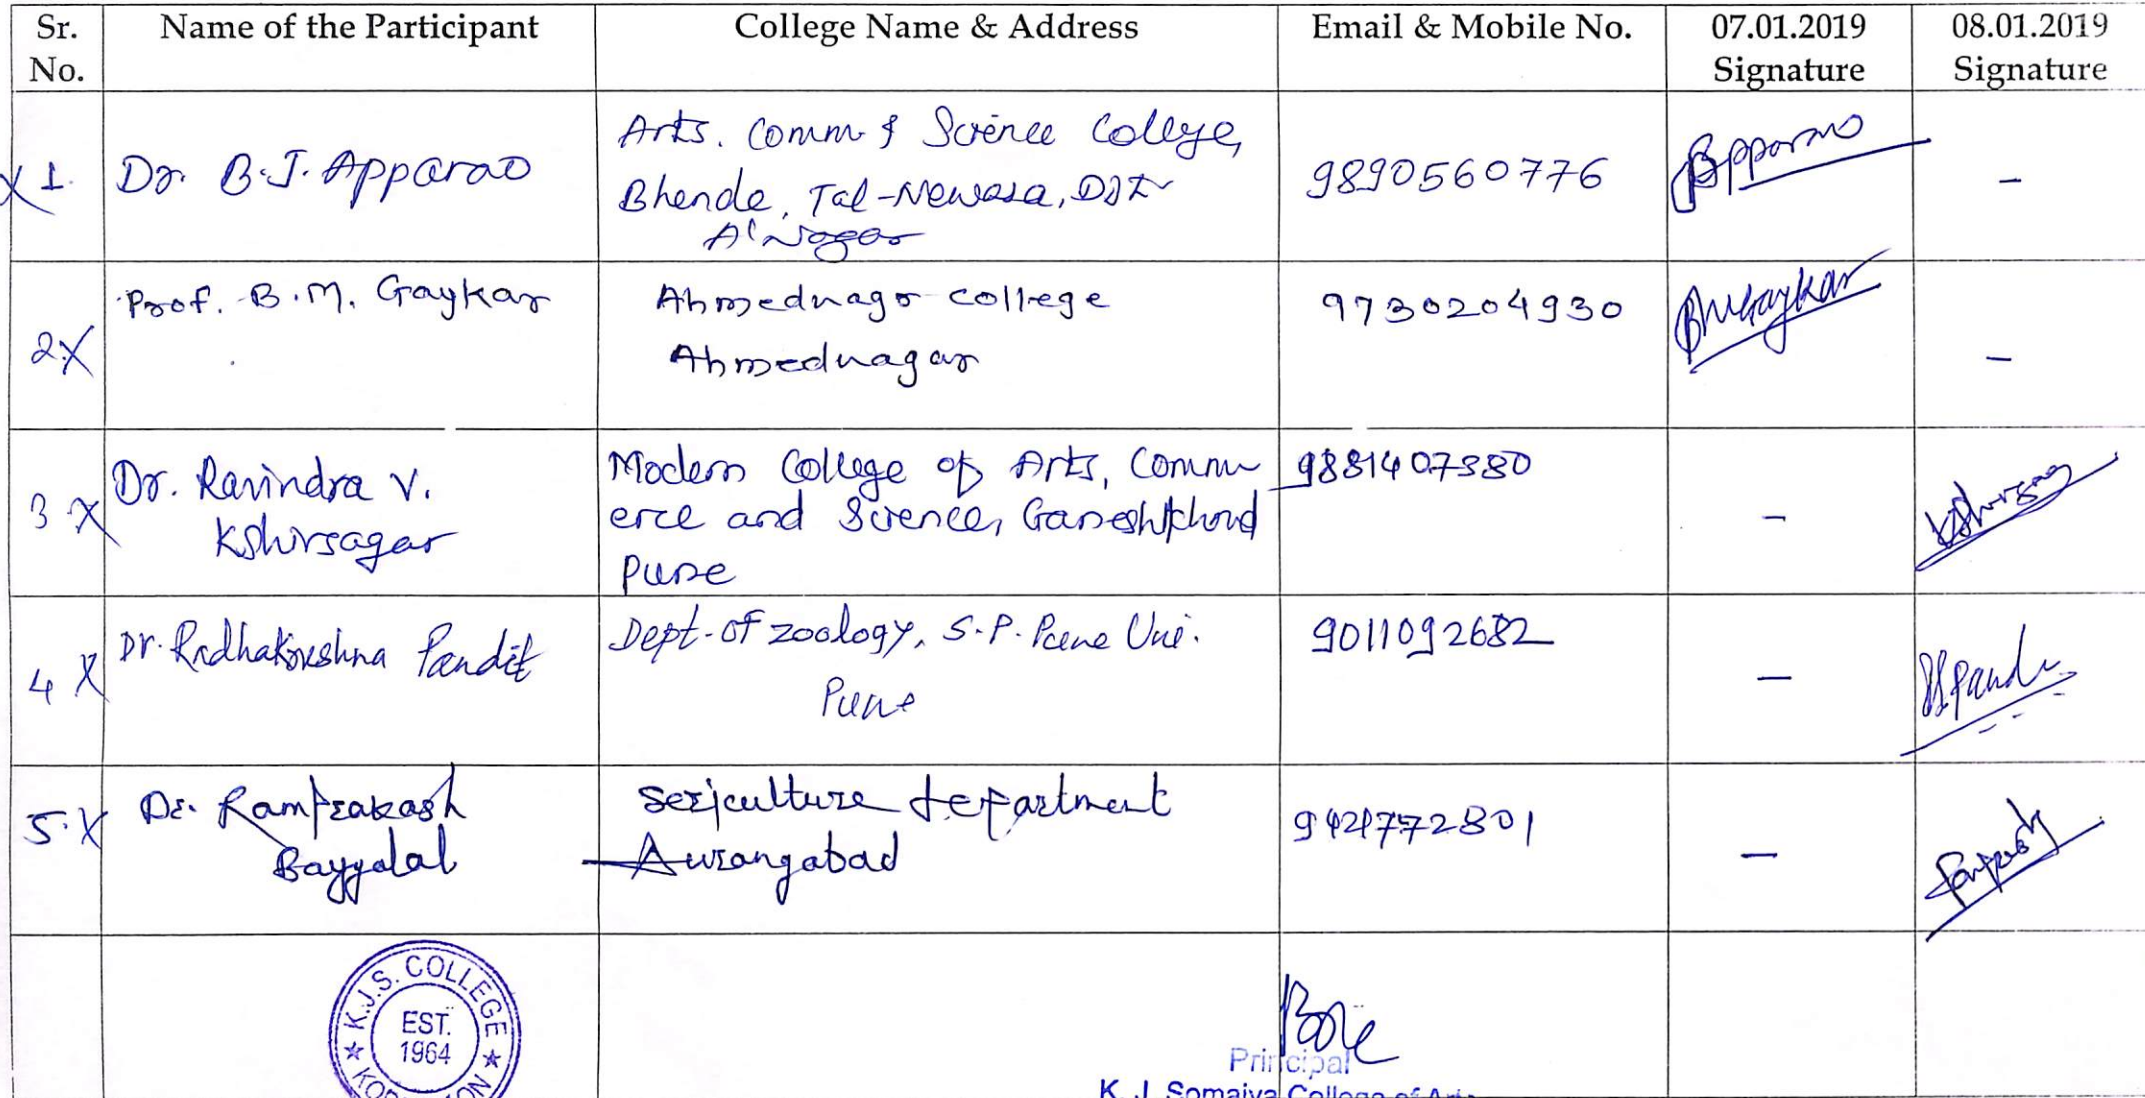 Sr. No. Name of the Participant College Name & Address Email & Mobile No. 07.01.2019 Signature 08.01.2019 Signature
X 1. Dr. B.J. Apparao
Arts. Comm & Science College,
Bhende, Tal-Newasa, Dist
A'Nagar
9890560776
Bpparao
–
2 X Prof. B.M. Gaykar
Ahmednagr college
Ahmednagar
9730204930
BMGaykar
–
3 X Dr. Ravindra V.
Kshirsagar
Modern College of Arts, Comm
erce and Science, Ganeshkhind
Pune
9881407380
–
Kshirsag
4 X Dr. Radhakrishna Pandit
Dept. of Zoology, S.P. Pune Uni.
Pune
9011092682
–
5. X Dr. Ramprakash
Sericulture department
Aurangabad
–
K.J.S. COLLEGE
EST.
1964
Principal
K. J. Somaiya College of Arts